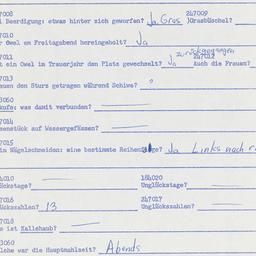 7008
i Beerdigung: etwas hinter sich geworfen? Ja. Gras 247009 )Grasbüschel?
7010
r Owel am Freitagabend hereingeholt? Ja
7011 zurückgegangen 247012
t ein Owel im Trauerjahr den Platz gewechselt? Ja Auch die Frauen?
7013
auen den Sturz getragen während Schiwe?
3060
kufz: was damit verbunden?
7014
senstück auf Wassergefässen?
7015
im Nägelschneiden: eine bestimmte Reihenfolge? Ja Links nach r
4010 184020
ückstage? Unglückstage?
7016 247017
ückszahlen? 13 Unglückszahlen?
7018
s ist Kallehaub?
3060
lche war die Hauptmahlzeit? Abends